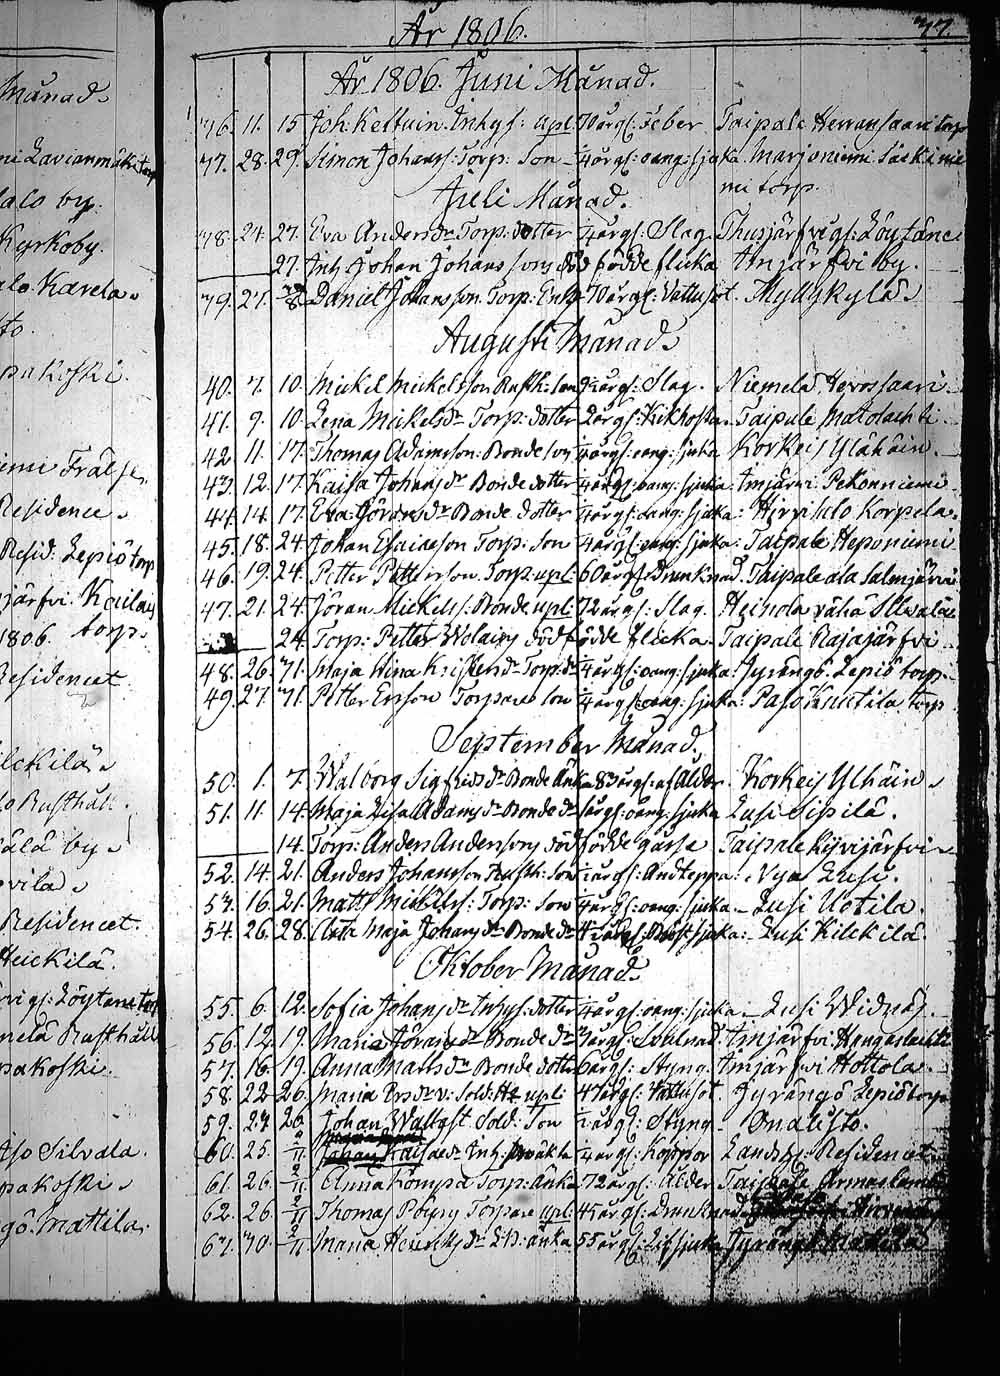 Månad.
Lavianmäki torp
by.
Kyrkoby.
Karela.
to.
pakoski.
Frälse
Residence.
Resid: Lepiö torp
järfvi. Kailas
1806. torp.
Residencet
Kilckilä.
Rusthåll.
by.
vila.
Residencet.
Heickilä.
Löytane torp
Rusthåll
pakoski.
Silvala.
pakoski.
Mattila.
År 1806. 37.
År 1806. Juni Månad.
36. 11. 15. Joh. Kettuin. Inhys: upl: 70 årg: Feber Taipale Herransaari torp
37. 28. 29. Simon Johans: Torp: Son ¼ årg: oang: sjuka Marjoniemi Säckinie
mi torp.
Juli Månad.
38. 24. 27. Eva Andersdr Torp: dotter ¼ årg: Slag. Thusjärfvi gs: Löytäne
27. Inh: Johan Johanssons död födde flicka Imjärfvi by.
39. 27. 3/8 Daniel Johansson Torp: Enkl: 70 årg: Vattusot. Myllykylä.
Augusti Månad.
40. 7. 10. Mickel Mickelsson Rusth: Son årg: Slag. Niemelä Hevossaari.
41. 9. 10. Lena Mickelsdr Torp: dotter 2 årg: Kikhosta. Taipale Matolachti.
42. 11. 17. Thomas Adamsson Bonde Son ¼ årg: oang: sjuka Korkeis Ylähäin.
43. 12. 17. Kaisa Johansdr Bonde dotter ¼ årg: oang: sjuka: Imjärvi Pekanniemi
44. 14. 17. Eva Göransdr Bonde dotter ¼ årg: oang: sjuka: Hirvisalo Korpela.
45. 18. 24. Johan Esaiasson Torp: Son ¼ årg: oang: sjuka: Taipale Heponiemi
46. 19. 24. Petter Pettersson Torp. upl: 60 årg: Drunknad. Taipale ala Salmjärvi
47. 21. 24. Jöran Mickels: Bonde upl: 72 årg: Slag. Heinola vähä Silvala.
24. Torp: Petter Wolains död födde flicka Taipale Rajajärfvi
48. 26. 31. Maja Stina Kristersdr Torp: dr ¼ årg: oang: sjuka: Jyrängö Lepiö torp.
49. 27. 31. Petter Ersson Torpares Son ¼ årg: oang: sjuka: Paso Knutila torp
September Månad.
50. 1. 7. Walborg Sigfridsdr Bonde Änka 83 årg: af Ålder. Korkeis Ylhäin.
51. 11. 14. Maja Lisa Adamsdr Bonde dr årg: oang: sjuka Lusi Sipilä.
14. Torp: Anders Anderssons död födde gosse Taipale Kijvijärfvi.
52. 14. 21. Anders Johansson Rusth: Son årg: Andteppa: Nya Lusi.
53. 16. 21. Matts Mickels: Torp: Son ¼ årg: oang: sjuka Lusi Uotila.
54. 26. 28. Anna Maja Johansdr Bonde dr årg: Bröstsjuka: Lusi Kilckilä
Oktober Månad.
55. 6. 12. Sofia Johansdr Inhys: dotter ¼ årg: oang: sjuka Lusi Widnäs.
56. 12. 19. Maria Jöransdr Bonde dr årg: Svulnad. Imjärfvi Hangaslachti
57. 16. 19. Anna Mattsdr Bonde dotter 6 årg: Styng. Imjärfvi Hottola.
58. 22. 26. Maria Ersdr v: Sold: H: upl: 47 årg: Vattusot. Jyrängö Lepiö torp
59. 24. 26. Johan Wallqst Sold: Son årg: Styng. Onalisto.
60. 25. 2/11 Inh: ¼ årg: Koppor Landsh: Residencet
61. 26. 2/11 Anna Kompa Torp: änka 72 årg: Ålder Taipale
62. 26. 2/11 Thomas Pöyry Torpare upl: 45 årg: Drunknad
63. 30. 2/11 Maria Henricksdr änka 55 årg: sjuka Jyrängö Mattila